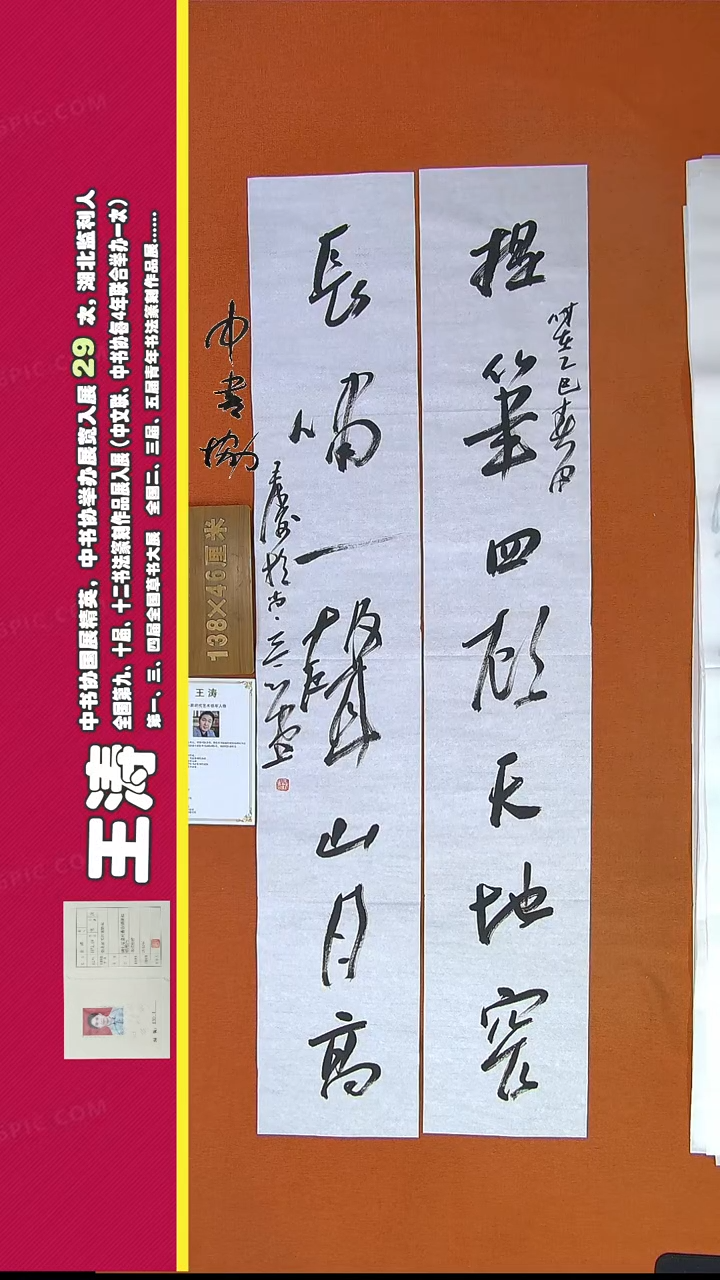 王涛
中书协国展精英，中书协举办展览入展 29 次，湖北监利人
全国第九、十届、十二书法篆刻作品展入展（中文联、中书协每4年联合举办一次）
第一、三、四届全国草书大展 全国二、三届、五届青年书法篆刻作品展……
提笔四顾天地窄
时在乙巳春月
長啸一聲山月高
中书协
138×46厘米
王涛